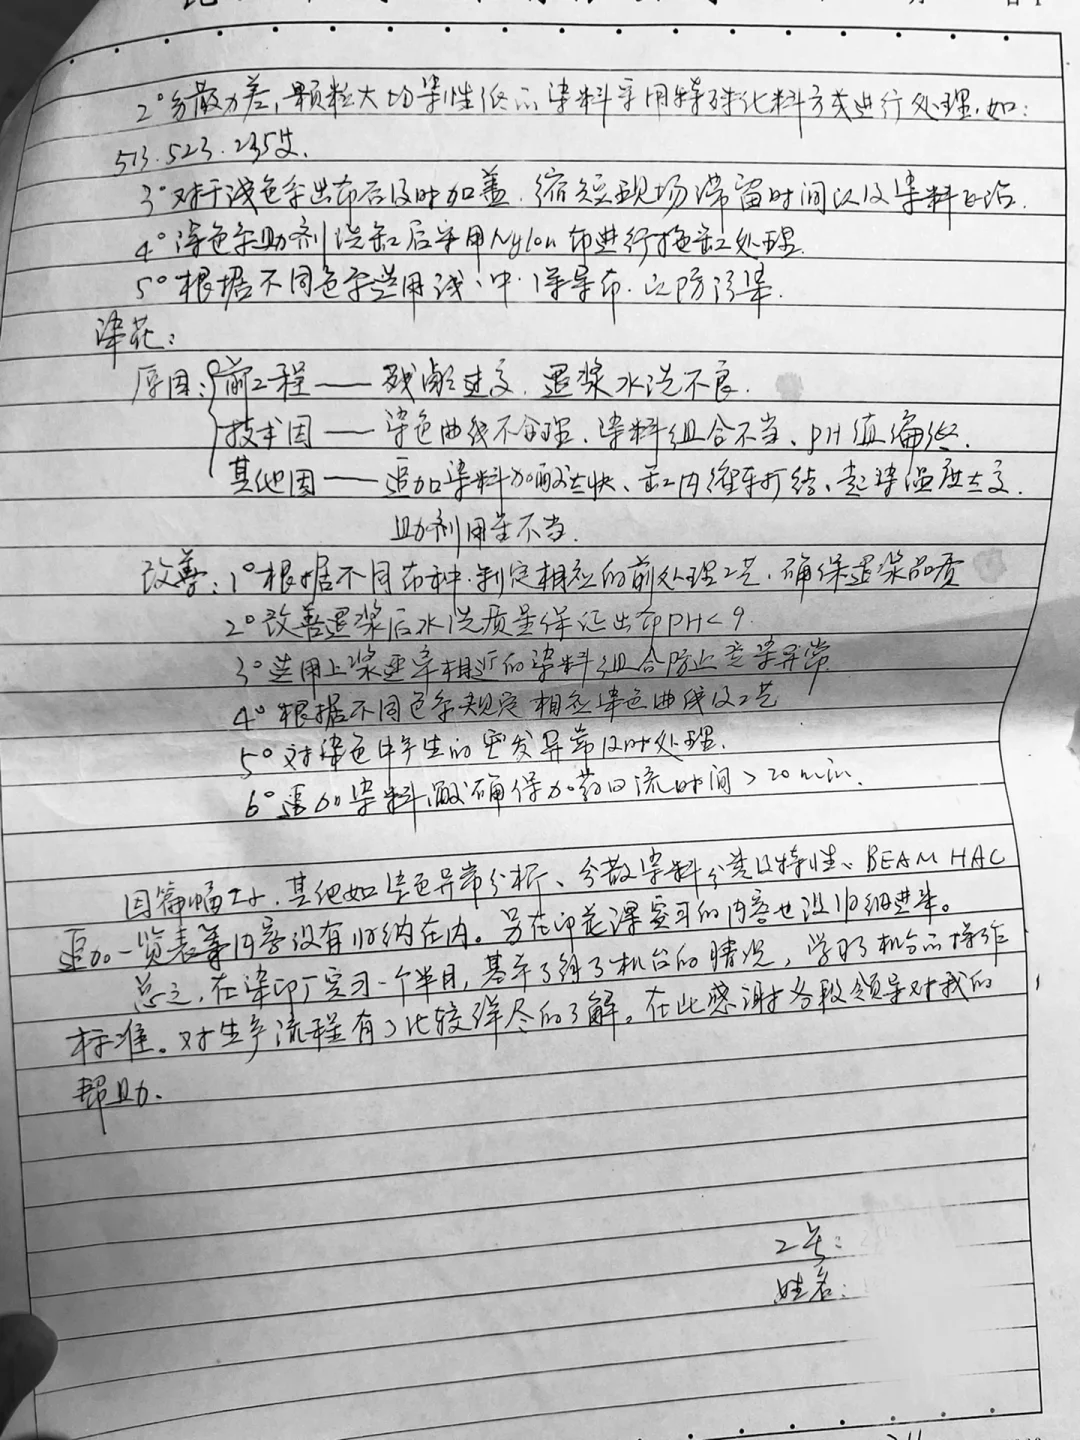 2°分散力差,颗粒大均染性低的染料采用特殊化料方式进行处理.如:
513.523.235又.
3°对于浅色系出布后及时加盖.缩短现场滞留时间以及染料飞沾.
4°深色系助剂洗缸后采用Nylon布进行拖缸处理.
5°根据不同色系选用浅、中、深导布.以防污染.
染花:
原因: 前工程——残碱过高.退浆水洗不良.
技术因——染色曲线不合理、染料组合不当、PH值偏终.
其他因——追加染料加酸太快、缸内缠车打结、起染温度太高.
助剂用量不当.
改善:1°根据不同布种.制定相应的前处理工艺.确保退浆品质
2°改善退浆后水洗质量保证出布PH<9.
3°选用上染速率相近的染料组合防止竞染异常
4°根据不同色系规定相应染色曲线及工艺
5°对染色中产生的突发异常及时处理.
6°追加染料、酸确保加药回流时间>20min.
因篇幅工作.其他如染色异常分析、分散染料分类及特性、BEAM HAC
追加一览表等内容没有归纳在内。另在印花课实习的内容也没归纳进来。
总之,在染印厂实习一个半月,基本了解了机台的情况,学习了机台的操作
标准。对生产流程有了比较详尽的了解。在此感谢各级领导对我的
帮助.
工号:
姓名: